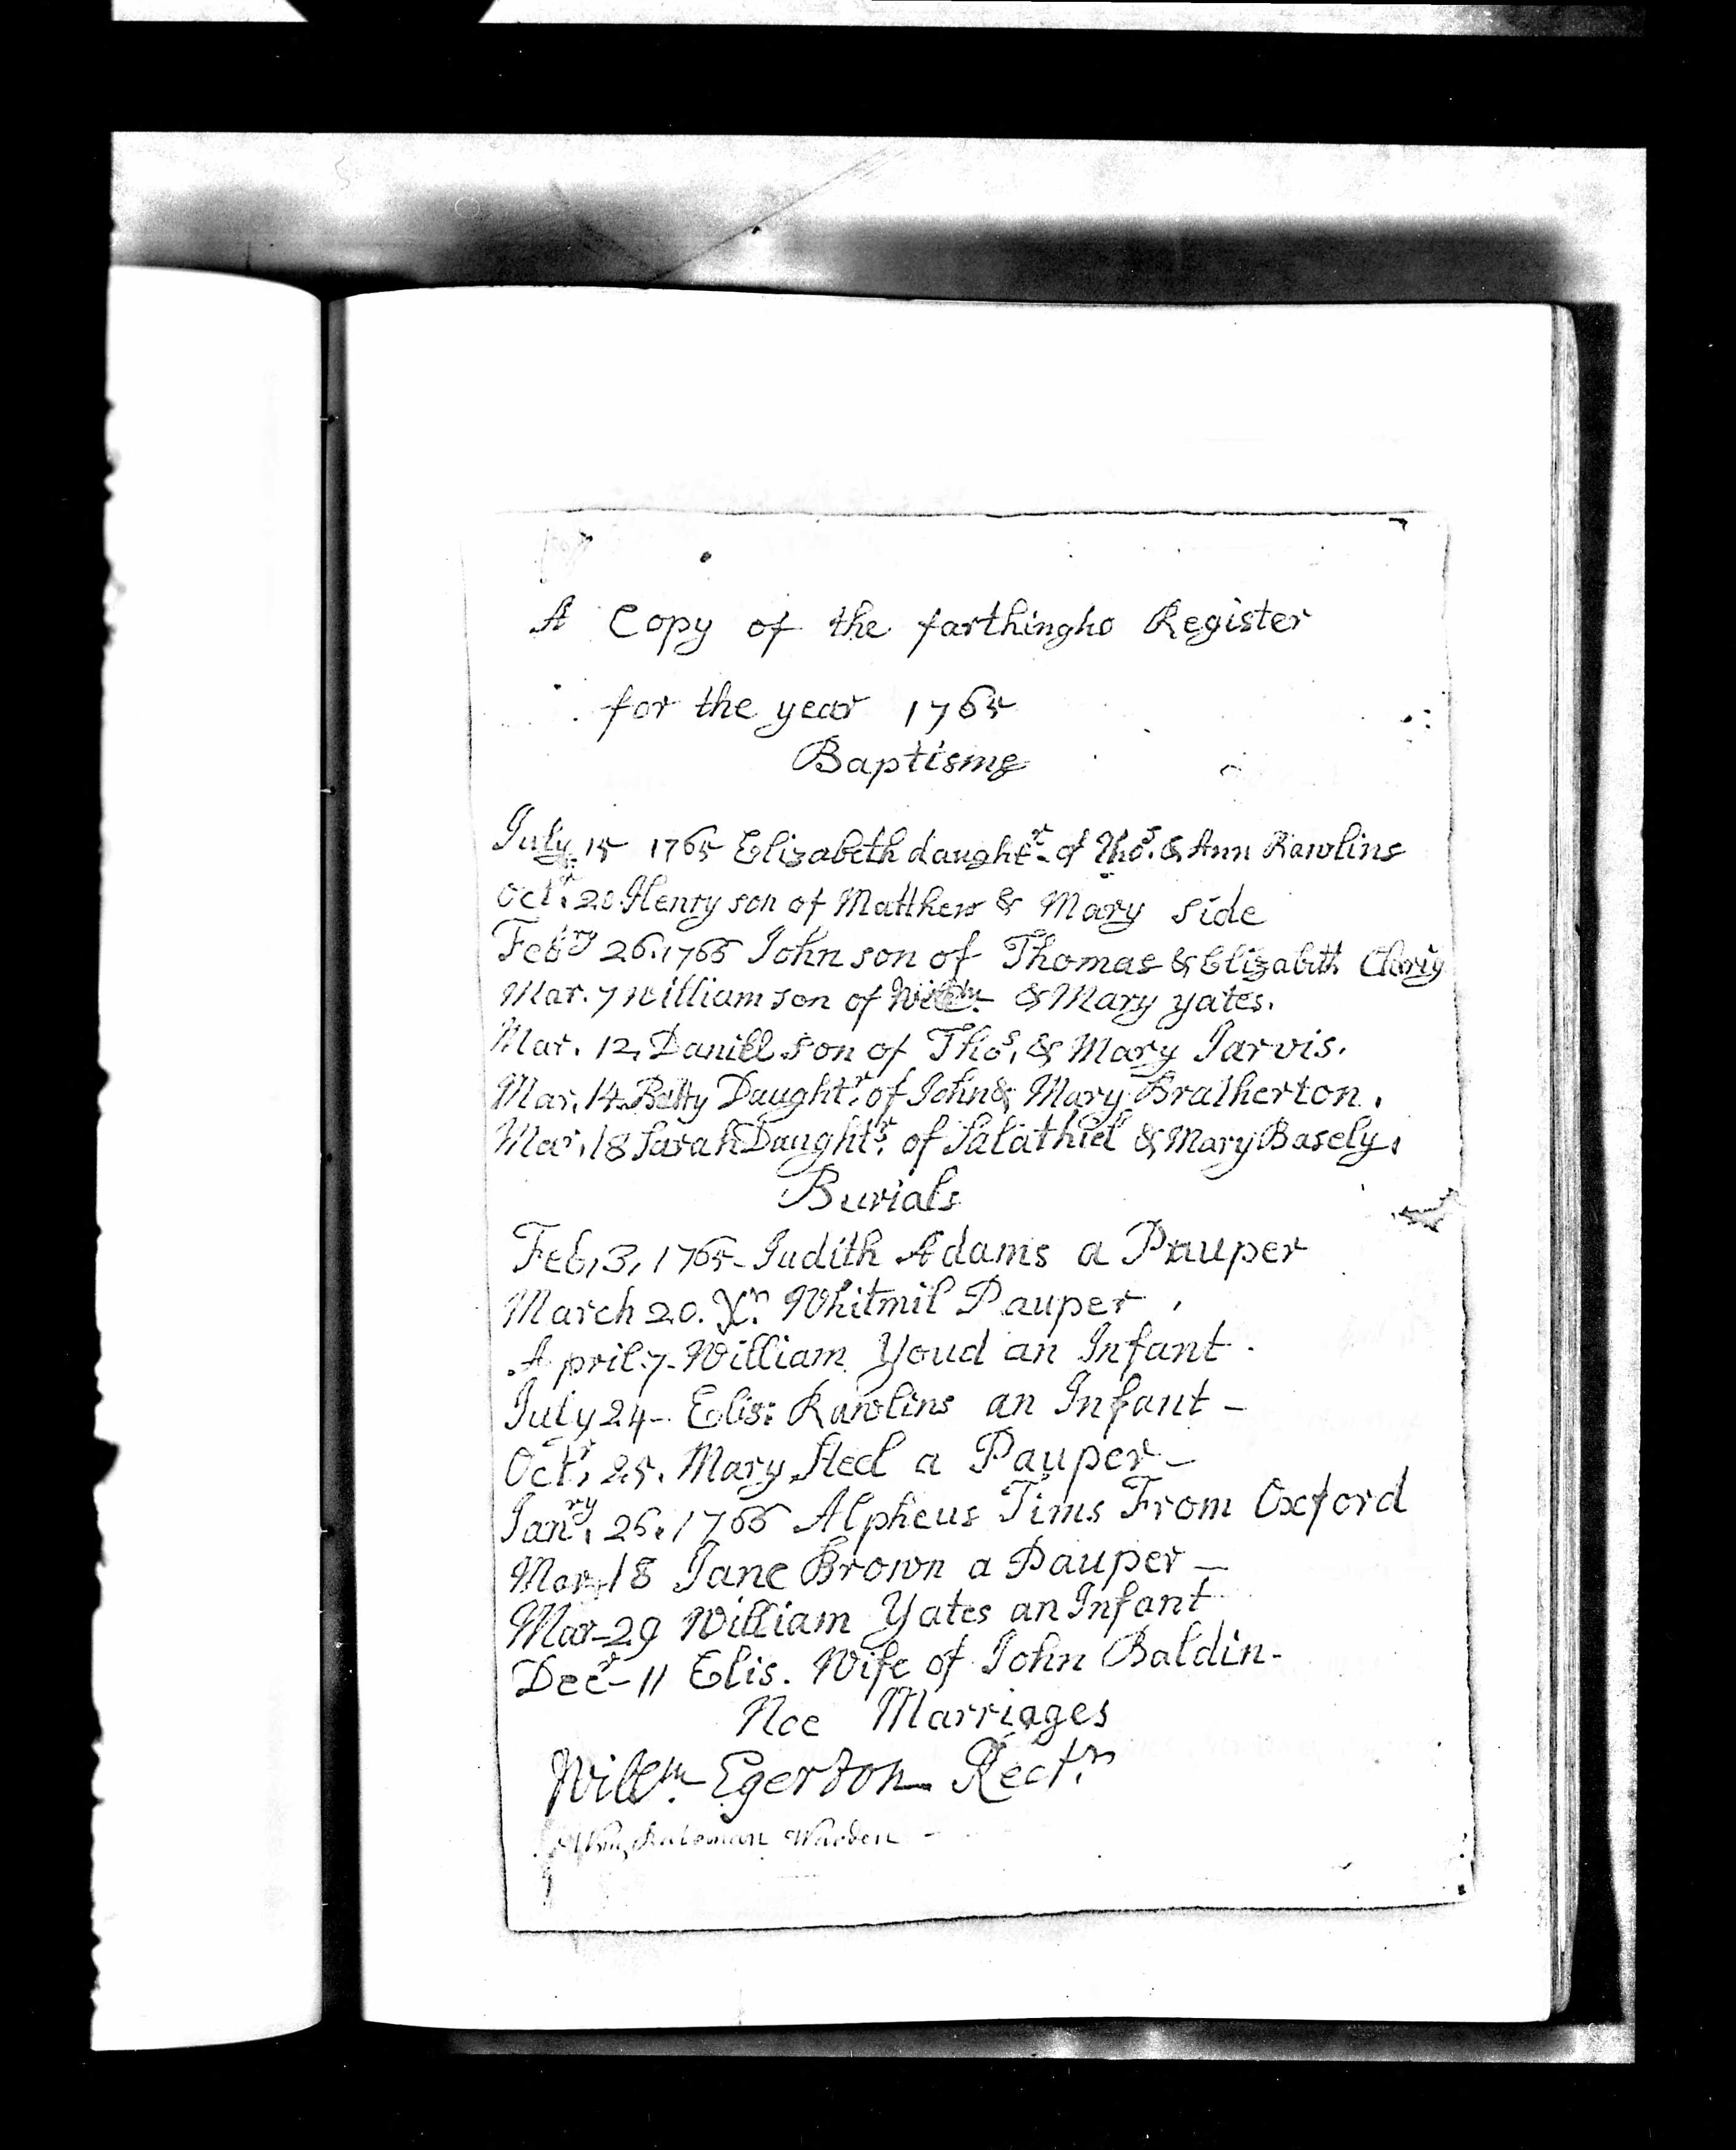 A Copy of the farthingho Register
for the year 1765
Baptisms
July 15 1765 Elizabeth daughtr. of Thos. & Ann Rawlins
Octr. 20 Henry son of Matthew & Mary Side
Febry 26. 1766 John son of Thomas & Elizabeth
Mar. 7 William son of Willm. & Mary yates.
Mar. 12, Daniell son of Thos. & Mary Jarvis.
Mar. 14 Betty Daughtr. of John & Mary Bratherton.
Mar. 18 Sarah Daughtr. of Salathiel & Mary Basely.
Burials
Feb, 3, 1765- Judith Adams a Pauper
March 20. Xr. Whitmil Pauper
April 7- William Youd an Infant.
July 24- Elis: Rawlins an Infant-
Octr. 25. Mary a Pauper-
Janry. 26. 1766 Alpheus Tims From Oxford
Mar. 18 Jane Brown a Pauper-
Mar- 29 William Yates an Infant
Decr- 11 Elis. Wife of John Baldin-
Noe Marriages
Willm- Egerton- Rectr.
Warden -